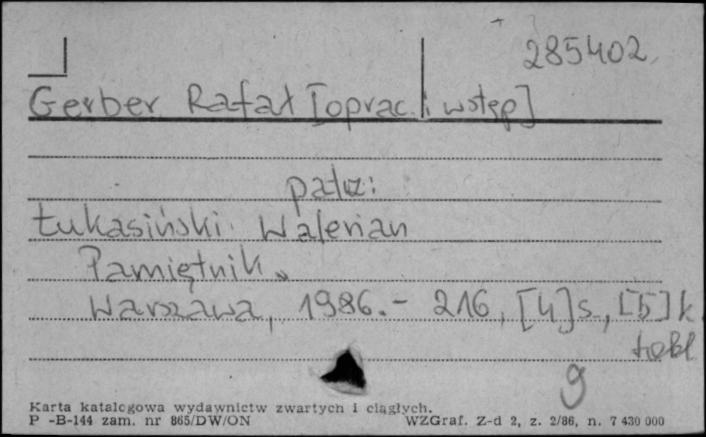 285402
Gerber Rafał [oprac. i wstęp]
patrz:
Łukasiński Walerian
Pamiętnik.
Warszawa, 1986.- 216, [4]s., [5]k
tabl
g
Karta katalogowa wydawnictw zwartych i ciągłych.
P -B-144 zam. nr 865/DW/ON WZGraf. Z-d 2, z. 2/86, n. 7 430 000